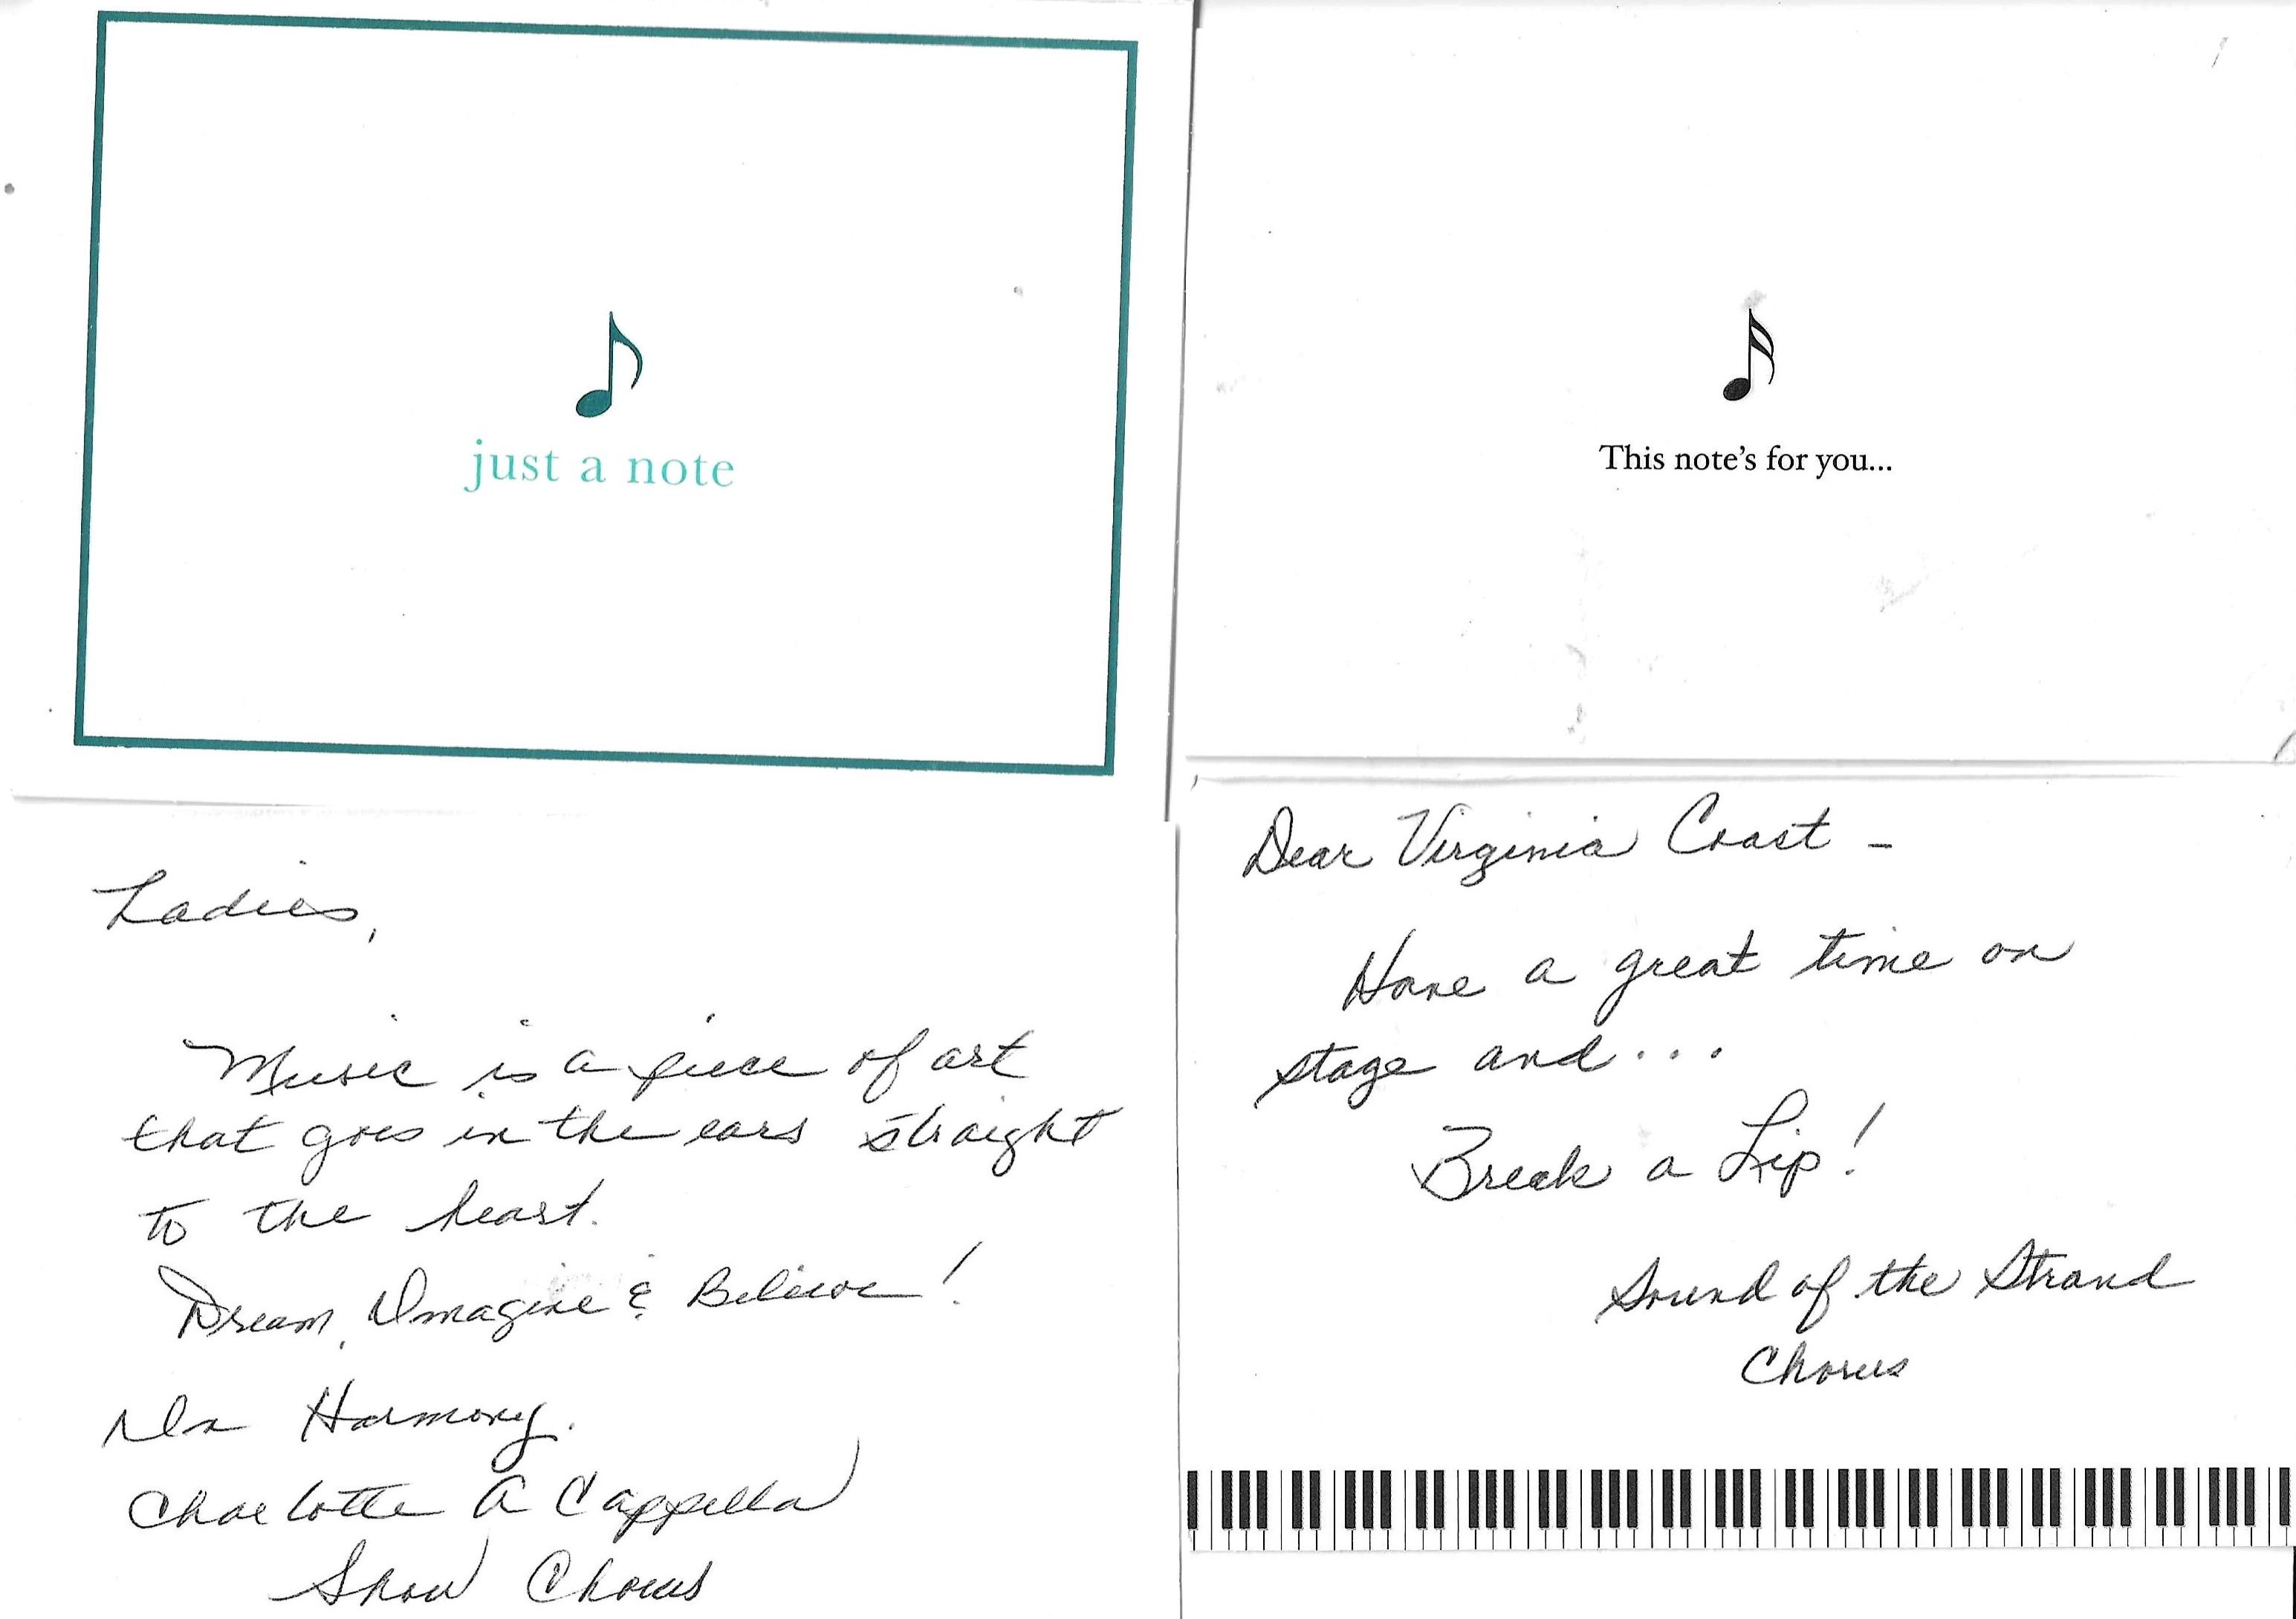 just a note
This note's for you...
Ladies,
Music is a piece of art
that goes in the ears straight
to the heart.
Dream, Imagine & Believe!
In Harmony.
Charlotte A Cappella
Show Chorus
Dear Virginia Coast -
Have a great time on
stage and...
Break a Lip!
Sound of the Strand
Chorus